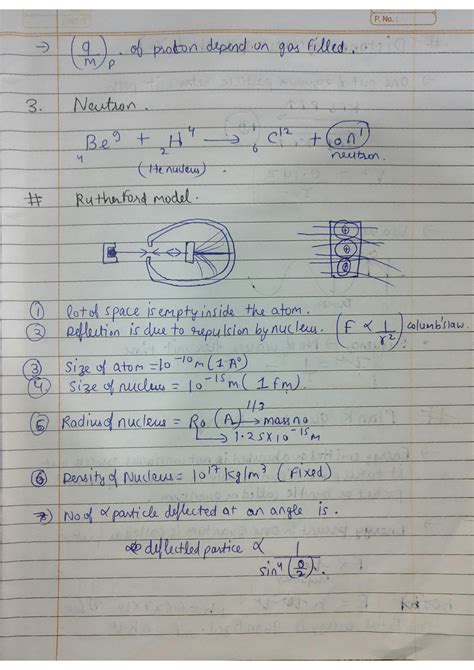 P. No.:
→ (q/m)p . of proton depend on gas filled.
3. Neutron.
₄Be⁹ + ₂H⁴ → ₆C¹² + ₀n¹
(He nucleus) neutron.
# Rutherford model.
① lot of space is empty inside the atom.
② Deflection is due to repulsion by nucleus. (F ∝ 1/r²) columb's law.
③ Size of atom = 10⁻¹⁰ m (1 A⁰)
④ Size of nucleus = 10⁻¹⁵ m (1 fm).
⑤ Radius of nucleus = R₀ (A)^1/3 → mass no
→ 1.25 X 10⁻¹⁵ m
⑥ Density of Nucleus = 10¹⁷ kg/m³ (Fixed)
7) No of α particle deflected at an angle is.
deflectled partice ∝ 1/sin⁴(θ/2).